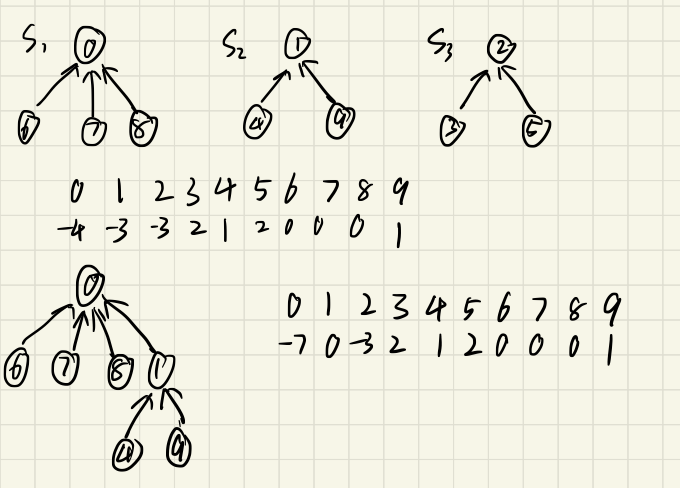 S1 0 S2 1 S3 2
6 7 8 4 9 3 5
0 1 2 3 4 5 6 7 8 9
-4 -3 -3 2 1 2 0 0 0 1
0
6 7 8 1
4 9
0 1 2 3 4 5 6 7 8 9
-7 0 -3 2 1 2 0 0 0 1